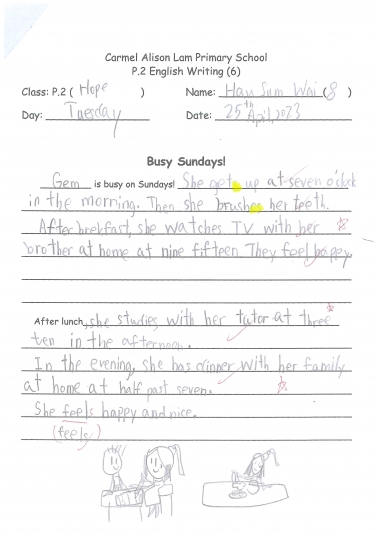 Carmel Alison Lam Primary School
P.2 English Writing (6)
Class: P.2 ( Hope ) Name: Hau Sum Wai (8)
Day: Tuesday Date: 25th April, 2023
Busy Sundays!
Gem is busy on Sundays! She gets up at seven o'clock
in the morning. Then she brushes her teeth.
After brekfast, she watches TV with her
brother at home at nine fifteen. They feel happy.
After lunch, she studies with her tutor at three
ten in the afternoon.
In the evening, she has dinner with her family
at home at half past seven.
She feels happy and nice.
(feels)